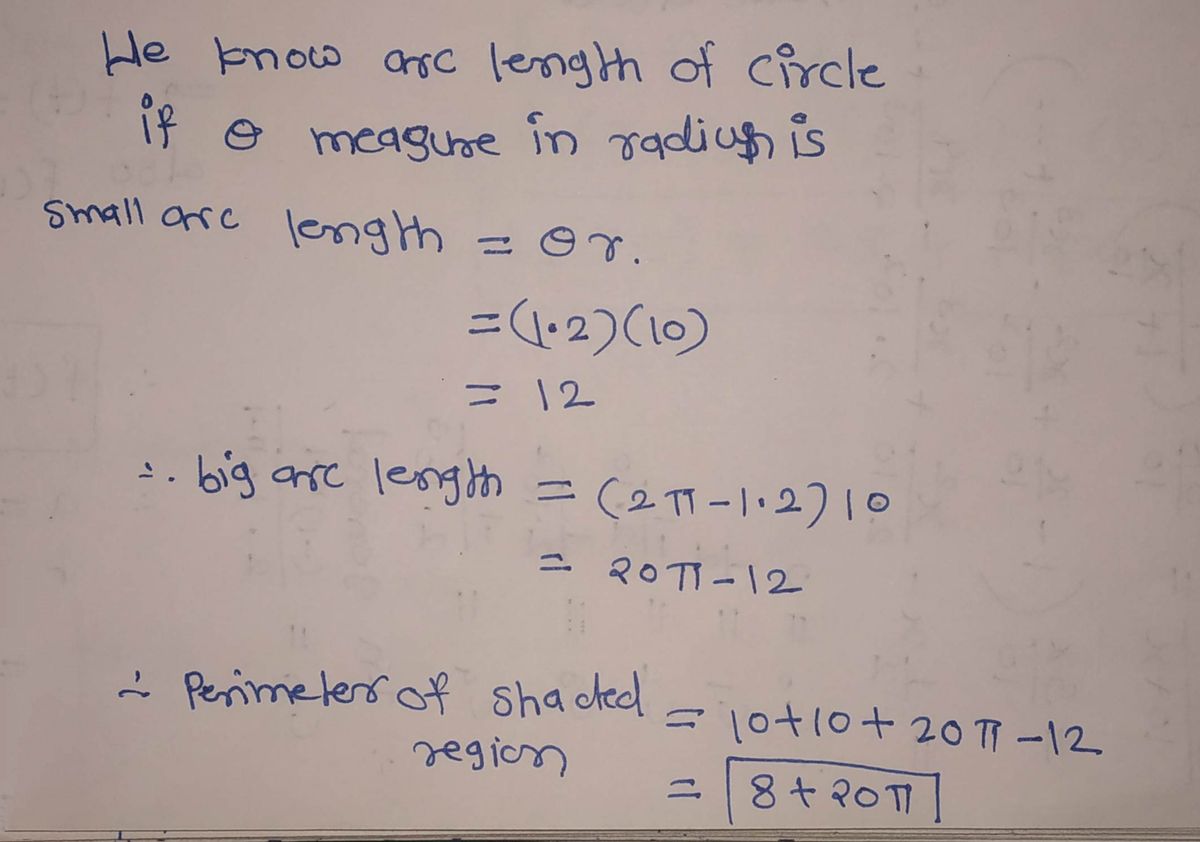 We know arc length of circle
if θ measure in radius is
small arc length = θr.
= (1.2)(10)
= 12
∴ big arc length = (2π-1.2)10
= 20π-12
∴ Perimeter of shaded region = 10+10+20π-12
= 8+20π